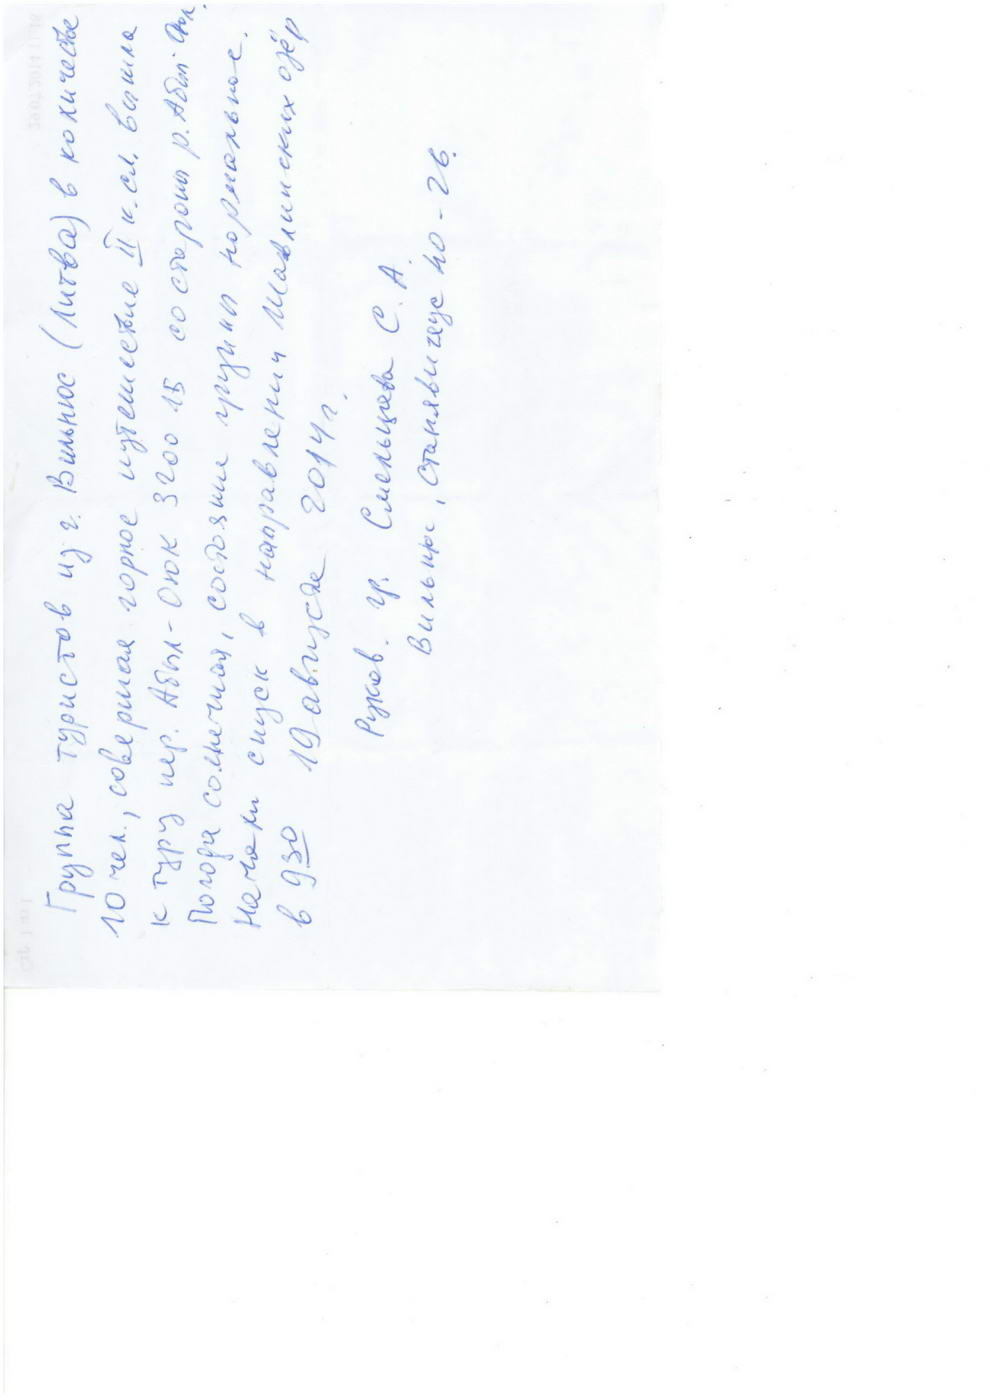 Группа туристов из г. Вильнюс (Литва) в количестве
10 чел., совершая горное путешествие II к.сл. вышла
к туру пер. Абыл-Оюк 3200 1Б со стороны р. Абыл-Оюк.
Погода солнечная, состояние группы нормальное.
Начали спуск в направлении Шавлинских озёр
в 9 30 19 августа 2014 г.
Руков. гр. Смельцова С. А.
Вильнюс, 40-26.